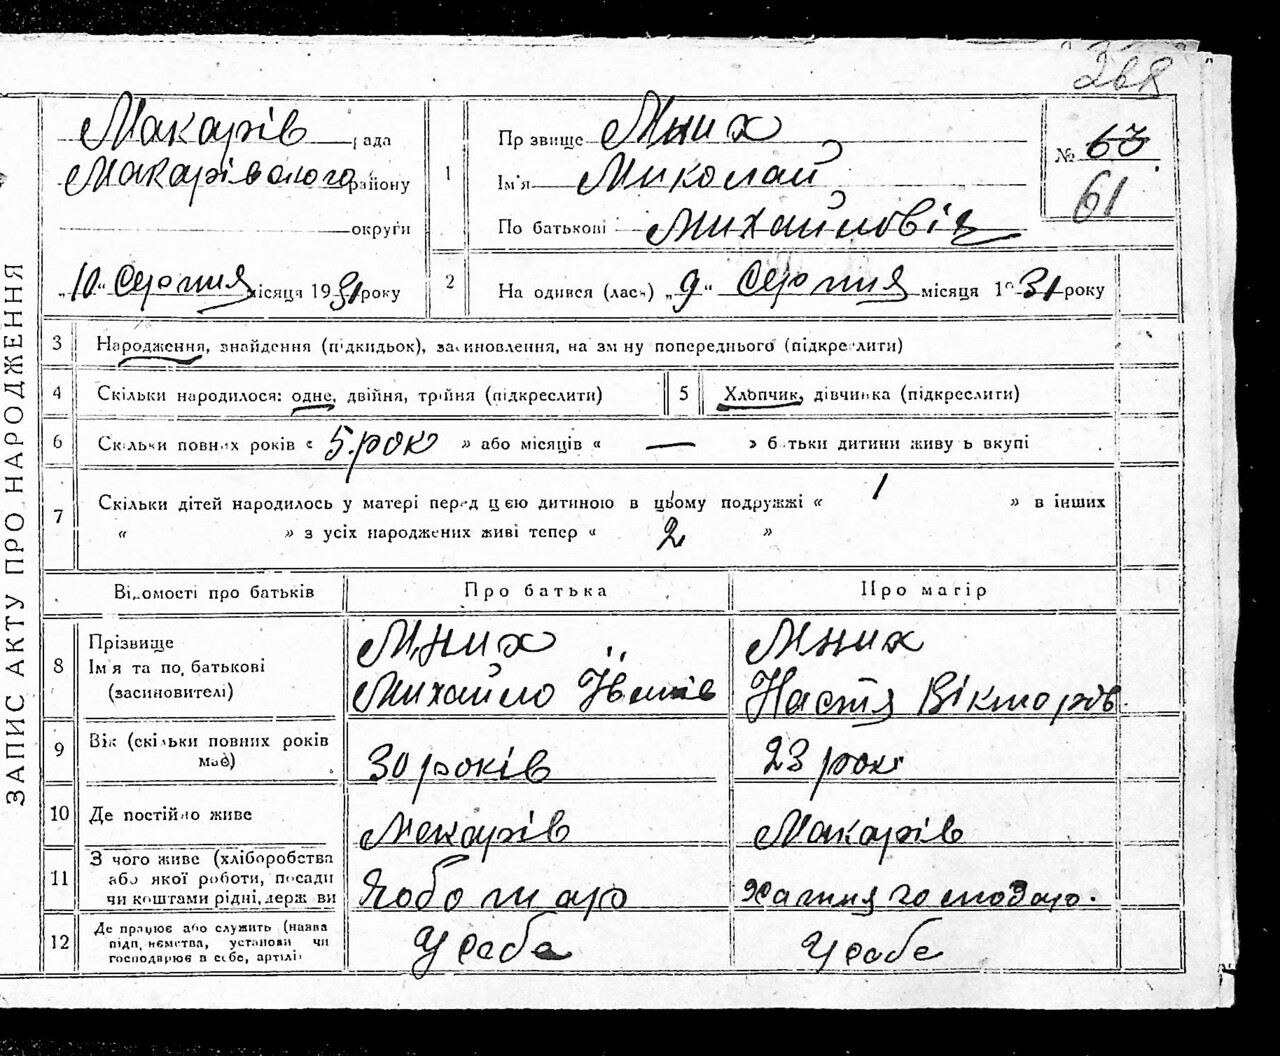 268
ЗАПИС АКТУ ПРО НАРОДЖЕННЯ
Макарів рада
Макарівського району
округи
„10“ Серпня місяця 1931 року
1
Прізвище Мних
Ім'я Миколай
По батькові Михайловіч
№ 63
61
2
На одився (лась) „9“ Серпня місяця 1931 року
3 Народження, знайдення (підкидьок), засиновлення, на зм ну попереднього (підкреслити)
4 Скільки народилося: одне, двійня, трійня (підкреслити)
5 Хлопчик, дівчинка (підкреслити)
6 Скільки повних років « 5 рок » або місяців « — » батьки дитини живу ь вкупі
7 Скільки дітей народилось у матері перед цією дитиною в цьому подружжі « 1 » в інших
« » з усіх народжених живі тепер « 2 »
Відомості про батьків Про батька Про матір
8 Прізвище
Ім'я та по, батькові
(засиновителі)
Мних
Михайло Іванів
Мних
Настя Вікторів
9 Вік (скільки повних років
має)
30 років
23 рок
10 Де постійно живе Макарів Макарів
11 З чого живе (хліборобства
або якої роботи, посади
чи коштами рідні, держ ви
Хатня господар.
12 Де працює або служить (назва
підп, иємства, установи чи
господарює в себе, артілі
У себе У себе